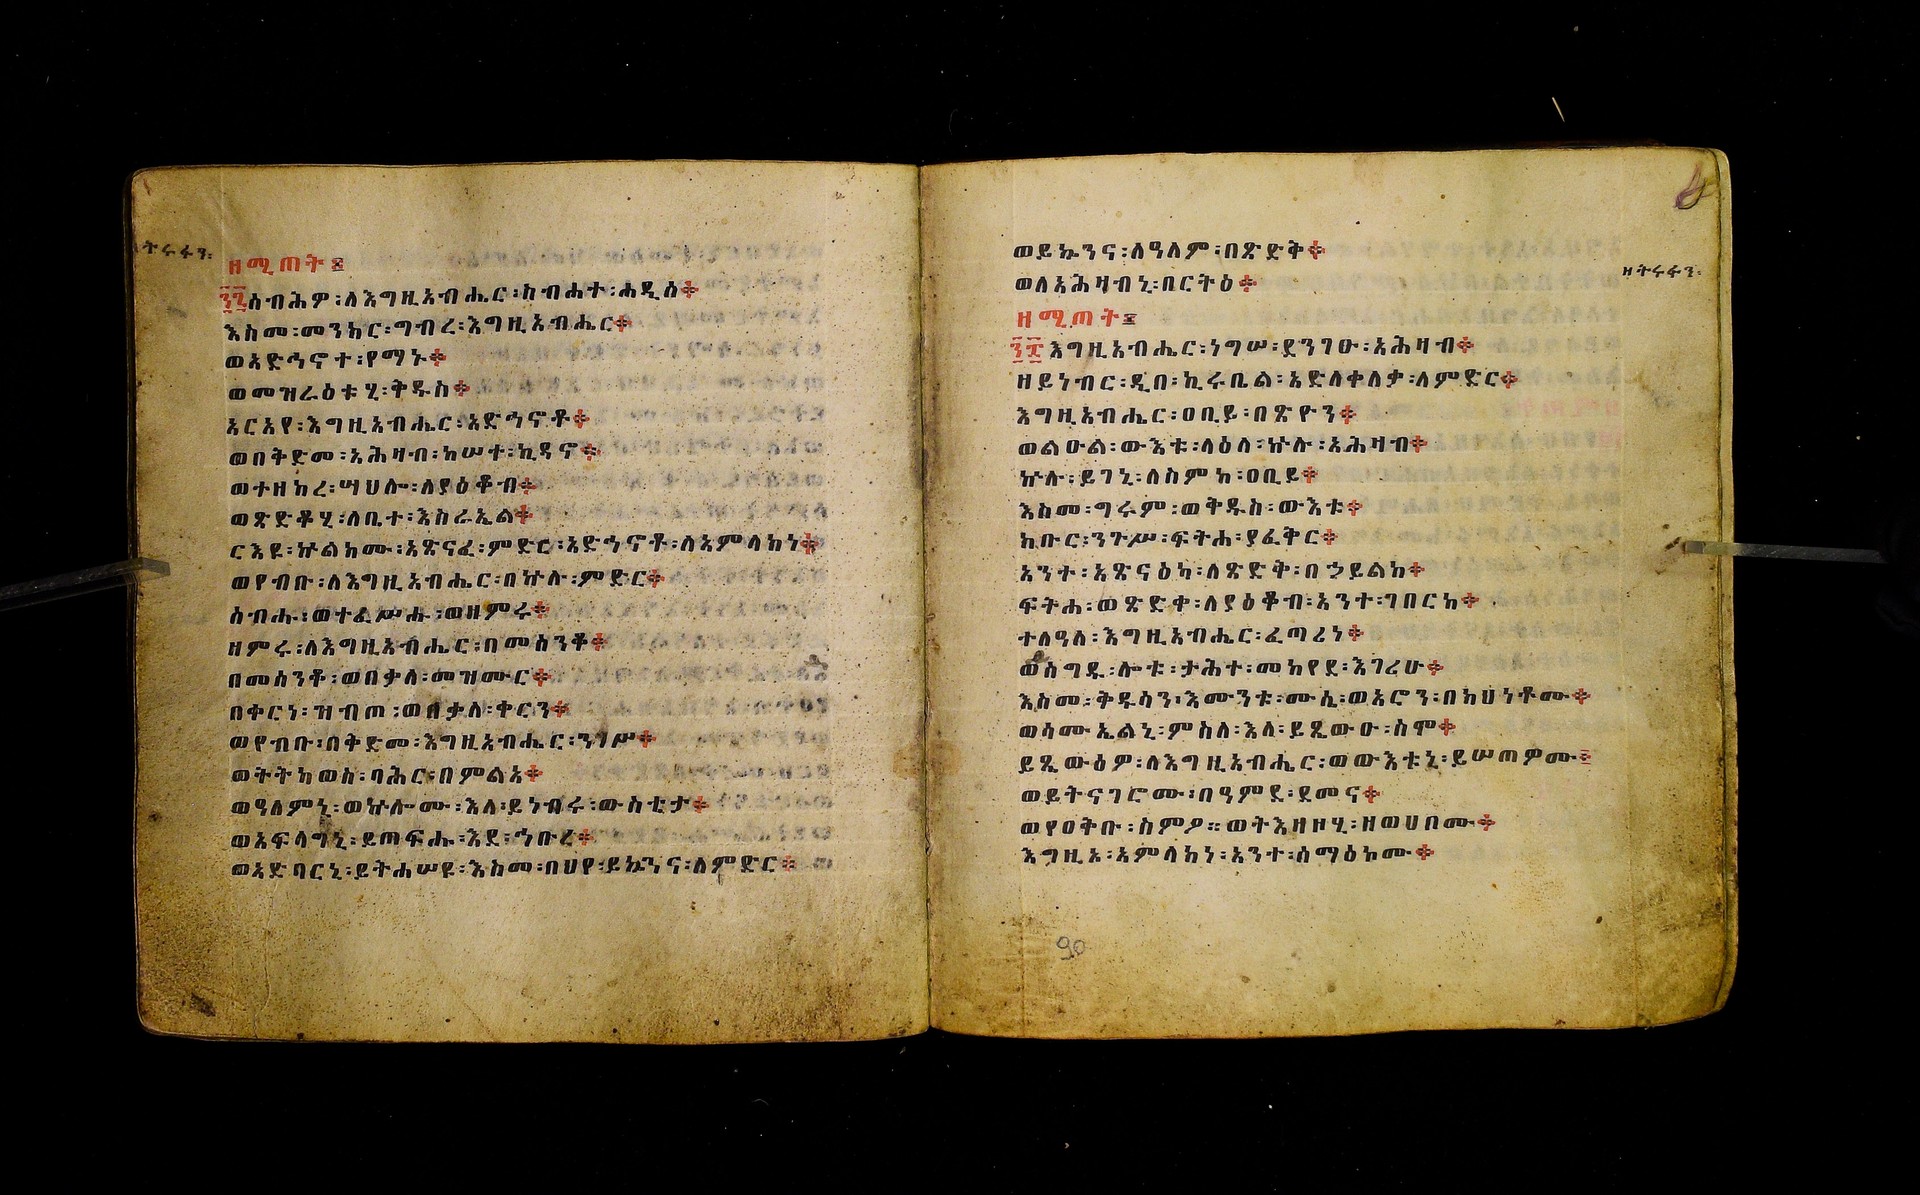 ዘትሩፋን፡
ዘሚጠት፤
፺፯ሰብሕዎ፡ለእግዚአብሔር፡ስብሐተ፡ሐዲሰ።
እስመ፡መንክር፡ግብረ፡እግዚአብሔር።
ወአድኀኖተ፡የማኑ።
ወመዝራዕቱሂ፡ቅዱስ።
አርአየ፡እግዚአብሔር፡አድኅኖቶ።
ወበቅድመ፡አሕዛብ፡ከሠተ፡ኪዳኖ።
ወተዘከረ፡ሣህሎ፡ለያዕቆብ።
ወጽድቆሂ፡ለቤተ፡እስራኤል።
ርእዩ፡ኵልክሙ፡አጽናፈ፡ምድር፡አድኅኖቶ፡ለአምላክነ።
ወየብቡ፡ለእግዚአብሔር፡በኵሉ፡ምድር።
ሰብሑ፡ወተፈሥሑ፡ወዘምሩ።
ዘምሩ፡ለእግዚአብሔር፡በመሰንቆ።
በመሰንቆ፡ወበቃለ፡መዝሙር።
በቀርነ፡ዝብጦ፡ወበቃለ፡ቀርን።
ወየብቡ፡በቅድመ፡እግዚአብሔር፡ንጉሥ።
ወትትከወስ፡ባሕር፡በምልአ።
ወዓለምኒ፡ወኵሎሙ፡እለ፡ይነብሩ፡ውስቴታ።
ወአፍላግኒ፡ይጠፍሑ፡እደ፡ኅቡረ።
ወአድባርኒ፡ይትሐሠዩ፡እስመ፡በህየ፡ይኴንና፡ለምድር።
ወይኴንና፡ለዓለም፡በጽድቅ።
ወለአሕዛብኒ፡በርትዕ።
ዘትሩፋን፡
ዘሚጠት፤
፺፰እግዚአብሔር፡ነግሠ፡ደንገፁ፡አሕዛብ።
ዘይነብር፡ዲበ፡ኪሩቤል፡አድለቀለቃ፡ለምድር።
እግዚአብሔር፡ዐቢይ፡በጽዮን።
ወልዑል፡ውእቱ፡ላዕለ፡ኵሉ፡አሕዛብ።
ኵሉ፡ይገኒ፡ለስምከ፡ዐቢይ።
እስመ፡ግሩም፡ወቅዱስ፡ውእቱ።
ክቡር፡ንጉሥ፡ፍትሐ፡ያፈቅር።
አንተ፡አጽናዕካ፡ለጽድቅ፡በኃይልከ።
ፍትሐ፡ወጽድቀ፡ለያዕቆብ፡አንተ፡ገበርከ።
ተለዓለ፡እግዚአብሔር፡ፈጣሪነ።
ወስግዱ፡ሎቱ፡ታሕተ፡መከየደ፡እገሪሁ።
እስመ፡ቅዱሳን፡እሙንቱ፡ሙሴ፡ወአሮን፡በክህነቶሙ።
ወሳሙኤልኒ፡ምስለ፡እለ፡ይጼውዑ፡ስሞ።
ይጼውዕዎ፡ለእግዚአብሔር፡ወውእቱኒ፡ይሠጠዎሙ።
ወይትናገሮሙ፡በዓምደ፡ደመና።
ወየዐቅቡ፡ስምዖ።ወትእዛዞሂ፡ዘወሀቦሙ።
እግዚኦ፡አምላክነ፡አንተ፡ሰማዕኮሙ።
90